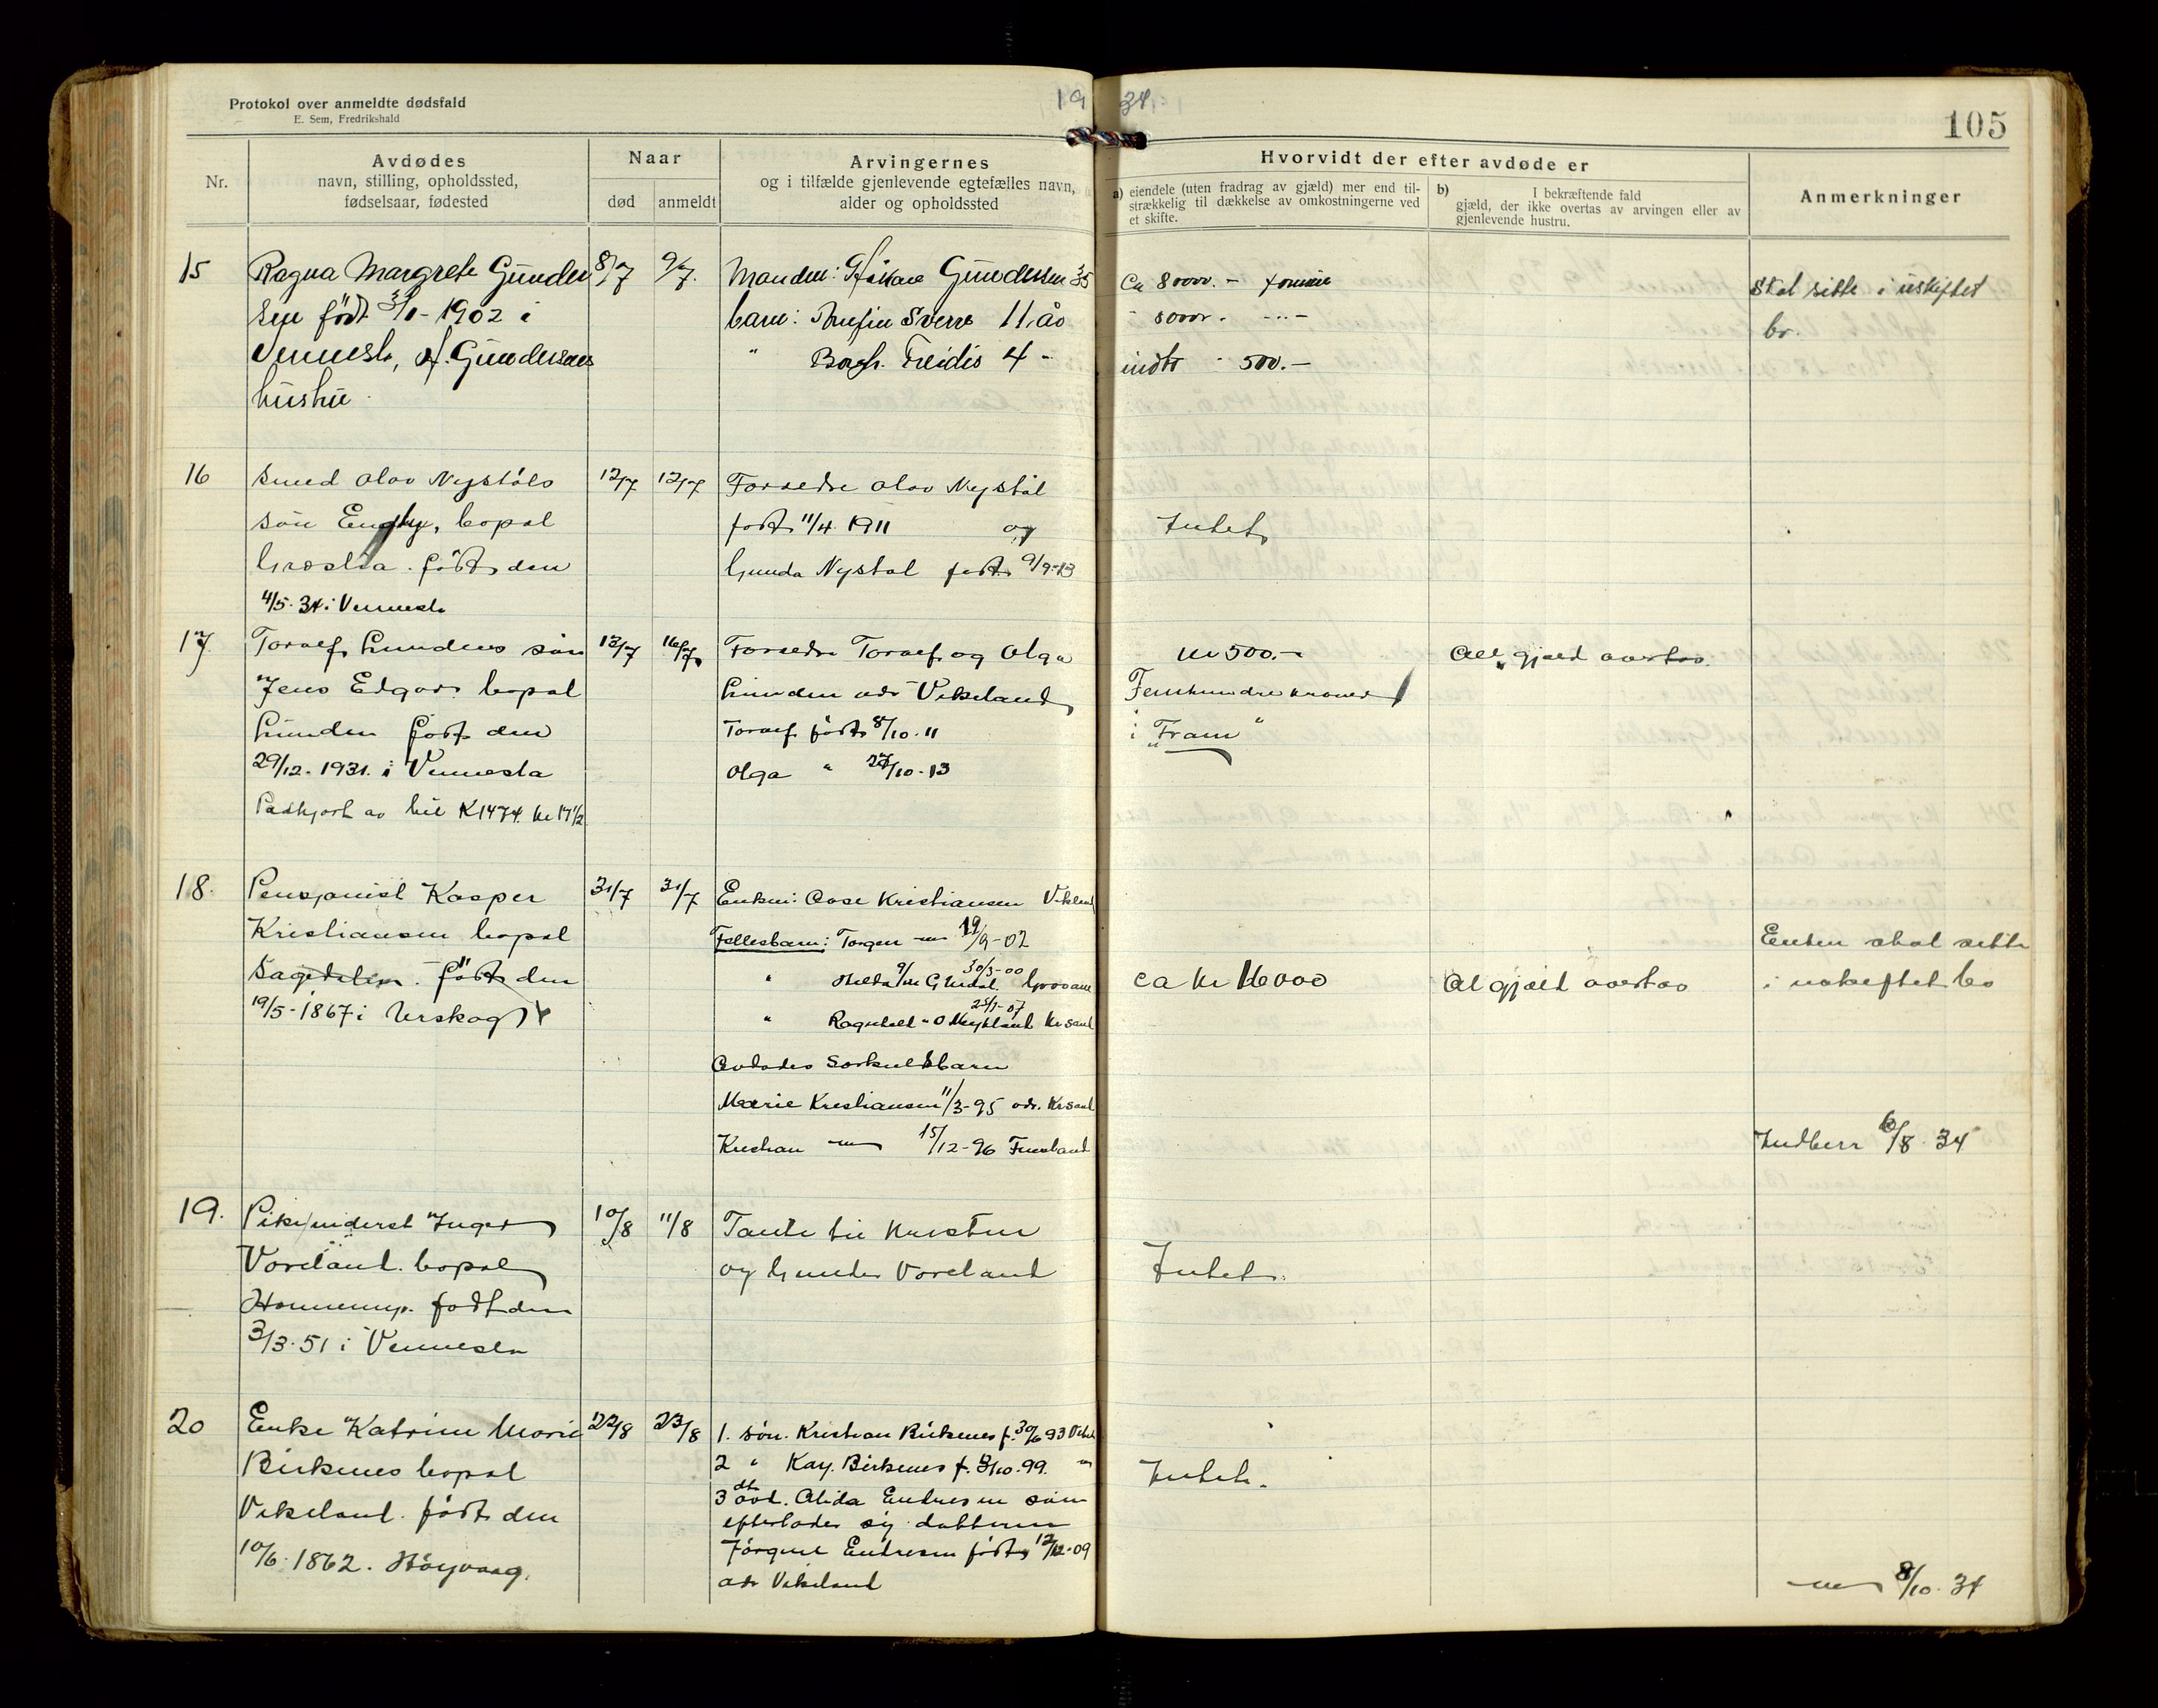 Protokol over anmeldte dødsfald
E. Sem, Fredrikshald
19 34
105
Nr.
Avdødes
navn, stilling, opholdssted,
fødselsaar, fødested
Naar
død
anmeldt
Arvingernes
og i tilfælde gjenlevende egtefælles navn,
alder og opholdssted
Hvorvidt der efter avdøde er
a) eiendele (uten fradrag av gjæld) mer end til-
strækkelig til dækkelse av omkostningerne ved
et skifte.
b) I bekræftende fald
gjæld, der ikke overtas av arvingen eller av
gjenlevende hustru.
Anmerkninger
15
Ragna Margrete Gunder
sen født 3/1-1902 i
Vennesla, Gundersens
hustru
8/7
9/7.
Manden: Gundersen 35
barn: Arnfin Sverre 11 år
" Borgh. Freidis 4 -
Ca 8000. -
- 5000. - -"-
indb - 500.-
Skal sitte i uskiftet
bo.
16
Smed Olav Nystöls
sön bopal
født den
4/5-34 i Vennesla
12/7
12/7
Foreldre Olav Nystöl
født 11/4 1911 og
Gunda Nystøl født 9/9-13
Intet
17
Toralf Lundens sön
Jens Edgar bopal
Lunden født den
29/12-1931. i Vennesla
Paakjørt av bil K1474 kl 17 1/2
13/7
16/7
Foreldre Toralf og Olga
Lunden adr Vikeland
Toralf født 8/10-11
Olga " 27/10-13
kr 500.-
Femhundre kroner
i "Fram"
All gjæld overtas.
18.
Pensjonist Kasper
Kristiansen bopal
Sagedalen. født den
19/5-1867 i
31/7
31/7
Enken: Aase Kristiansen Vikeland
Fellesbarn: Torger -"- 19/9-02
" Hilda g/m G 30/3-00
" Ragnhild " O 25/1-07 Krsand
Avdødes Særkulsbarn
Marie Kristiansen 11/3-95 adr. Krsand
Kristian -"- 15/12-96
ca kr 16000
Al gjæld overtas
Enken skal sitte
i uskiftet bo
Indber 6/8-34
19.
Pike Inger
Voreland. bopal
født den
3/3-51 i Vennesla
10/8
11/8
Tante til Kristen
og Gunder Voreland
Intet.
20
Enke Katrine Marie
Birkenes bopal
Vikeland. født den
10/6-1862. Höyvaag.
22/8
23/8
1. sön. Kristian Birkenes f. 30/6 93
2 " Kay. Birkenes f. 3/10-99. -"-
3 dt avd. Alida Endresen som
efterlader sig datteren
Jörgine Endresen født 12/12-09
adr Vikeland
Intet.
-"- 8/10-34